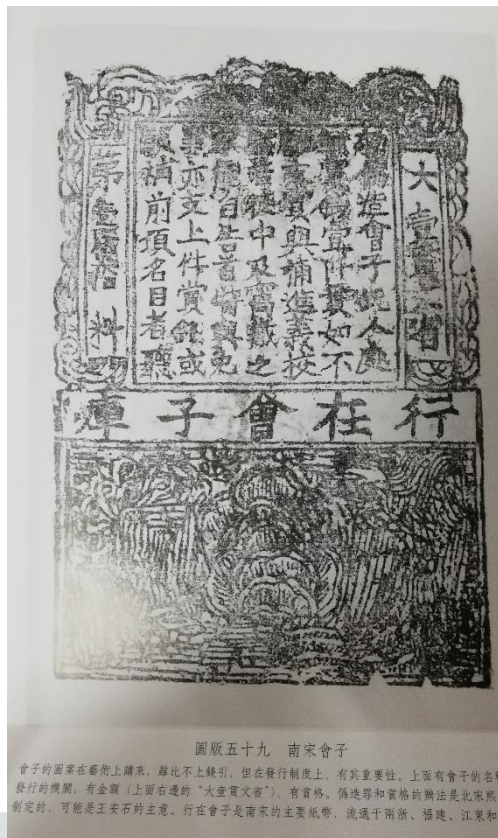 大壹貫文省
敕偽造會子犯人處
斬賞錢壹阡貫如不
願支賞與補進義校
尉若徒中及窩藏之
家能自告首特與免
罪亦支上件賞錢或
願補前項名目者聽
第壹拾料
行在會子庫
圖版五十九 南宋會子
會子的圖案在藝術上講來，雖比不上錢引，但在發行制度上，有其重要性。上面有會子的名
發行的機關，有金額（上面右邊的“大壹貫文省”），有賞格。偽造罪和賞格的辦法是北宋熙
制定的，可能是王安石的主意。行在會子是南宋的主要紙幣，流通于兩浙、福建、江東和